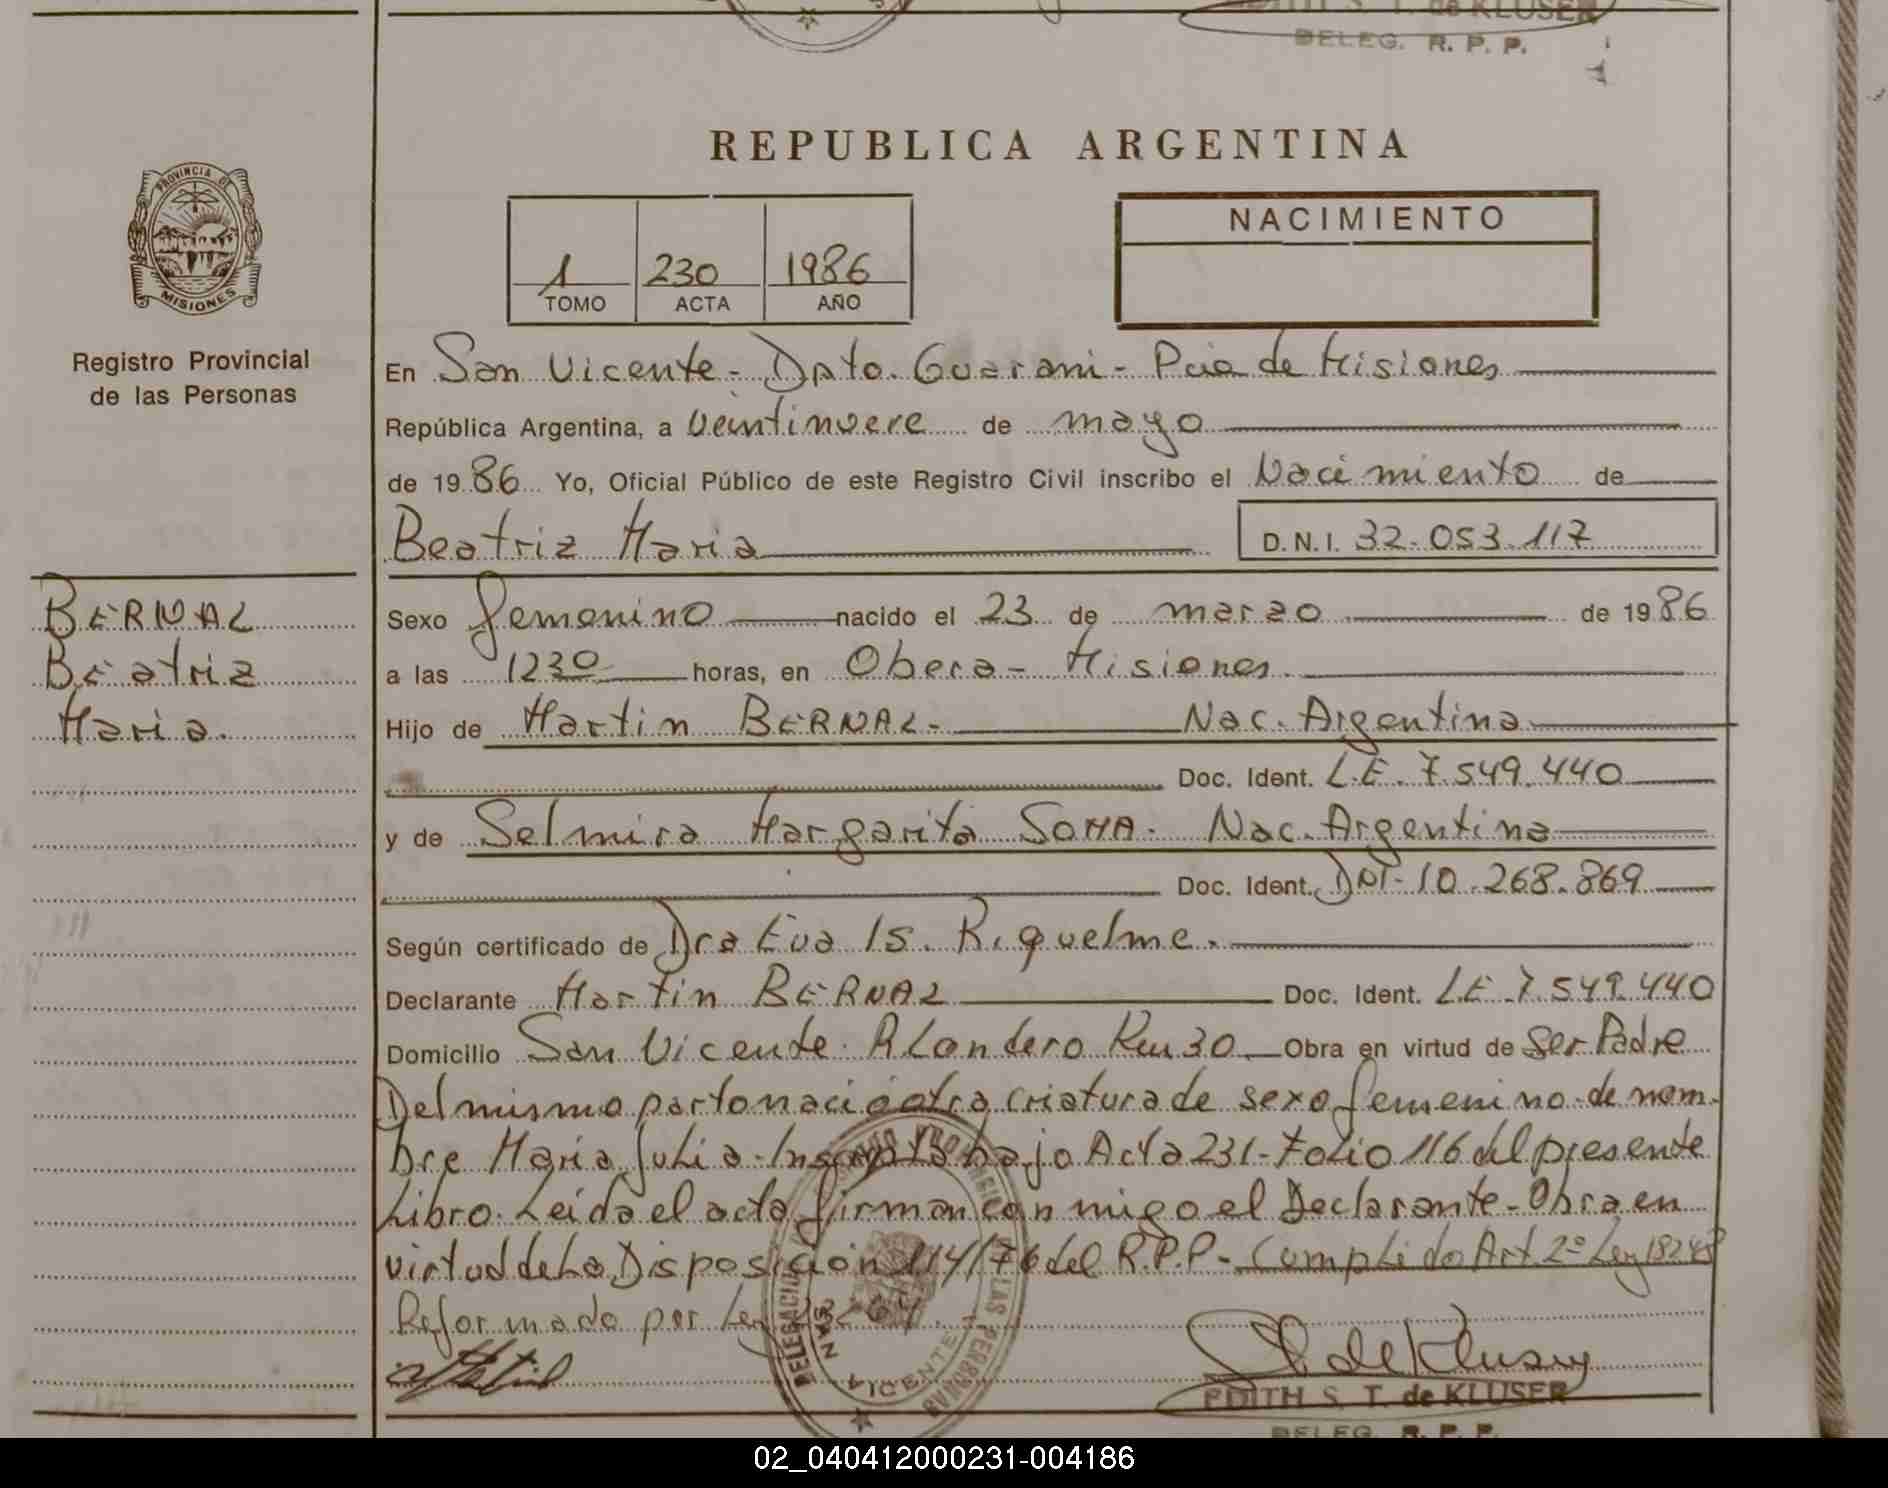 EDITH S. T. de KLUSER
DELEG. R. P. P.
REPUBLICA ARGENTINA
PROVINCIA DE
MISIONES
Registro Provincial
de las Personas
1 230 1986
TOMO ACTA AÑO
NACIMIENTO
En San Vicente - Dpto. Guarani - Pcia de Misiones
República Argentina, a veintinueve de mayo
de 1986 Yo, Oficial Público de este Registro Civil inscribo el Nacimiento de
Beatriz Maria D.N.I. 32.053.117
BERNAL
Beatriz
Maria.
Sexo femenino nacido el 23 de marzo de 1986
a las 1230 horas, en Obera - Misiones.
Hijo de Martin BERNAL- Nac. Argentina
Doc. Ident. L.E. 7.549.440
y de Selmira Margarita SOMA. Nac. Argentina
Doc. Ident. DNI-10.268.869
Según certificado de Dra Eva Is. Riquelme.
Declarante Martin BERNAL Doc. Ident. LE 7.549.440
Domicilio San Vicente. Km 30 Obra en virtud de Ser Padre
Del mismo parto nació otra criatura de sexo femenino de nom-
bre Maria Julia. Inscripta bajo Acta 231-Folio 116 del presente
Libro. Leida el acta firman con migo el Declarante-Obra en
virtud de La Disposición 114/76 del R.P.P- Cumplido Art. 2º Ley 18248
Reformado por Ley
SAN VICENTE
EDITH S. T. de KLUSER
DELEG. R. P. P.
02_040412000231-004186